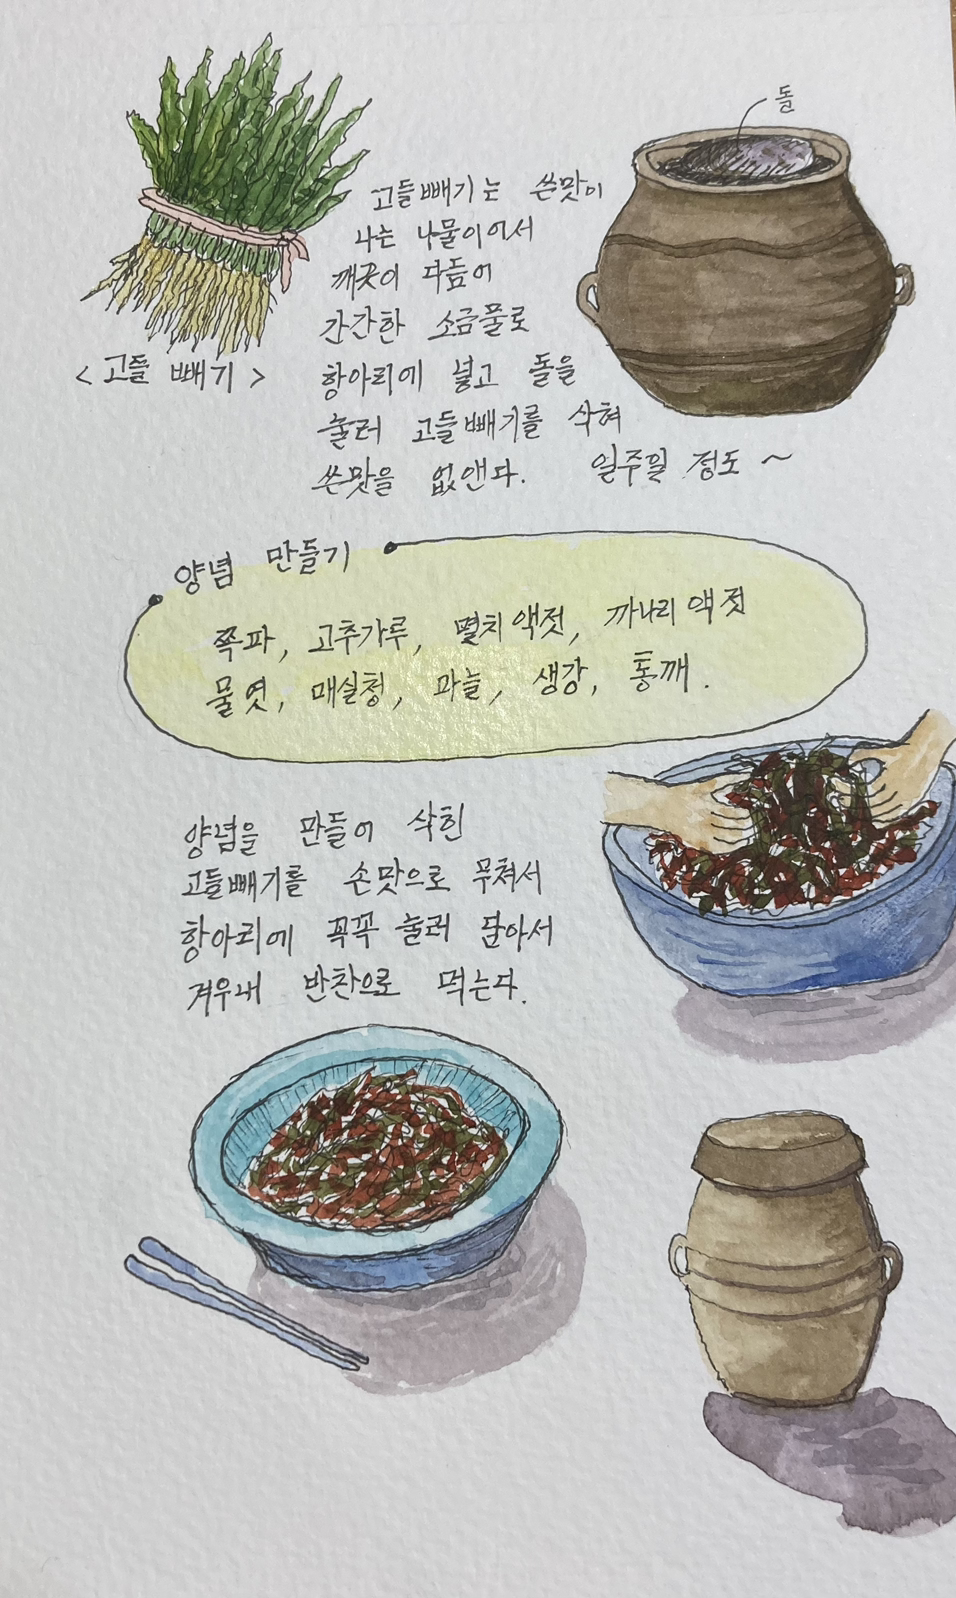 돌
고들빼기는 쓴맛이
나는 나물이어서
깨끗이 다듬어
간간한 소금물로
항아리에 넣고 돌을
눌러 고들빼기를 삭혀
쓴맛을 없앤다. 일주일 정도 ~
< 고들 빼기 >
양념 만들기
쪽파, 고추가루, 멸치액젓, 까나리액젓
물엿, 매실청, 마늘, 생강, 통깨.
양념을 만들어 삭힌
고들빼기를 손맛으로 무쳐서
항아리에 꼭꼭 눌러 담아서
겨우내 반찬으로 먹는다.